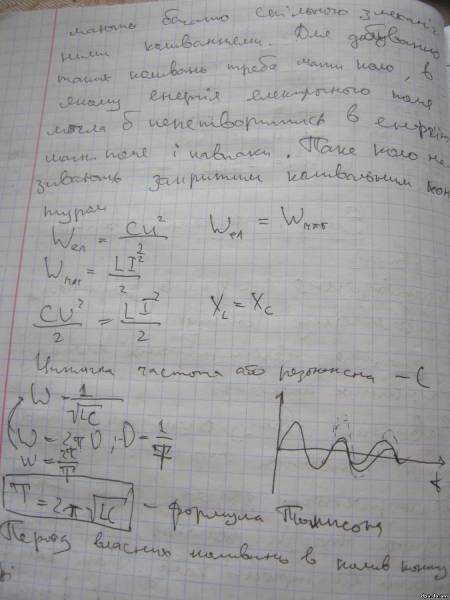 мають багато спільного з механіч
ними коливаннями. Для добування
таких коливань треба мати коло, в
якому енергія електричного поля
могла б перетворитись в енергію
магн. поля і навпаки. Таке коло на
зивають закритим коливальним кон
туром
Wел = CU²/2   Wел = Wмаг
Wмаг = LI²/2
CU²/2 = LI²/2   X_L = X_C
Циклічна частота або резонансна – C
W = 1/√LC
W = 2πν, ν = 1/T
W = 2π/T
t
T = 2π√LC – формула Томпсона
Період власних коливань в колив конту
рі
dpa.in.ua